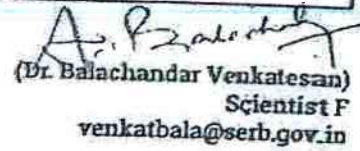 (Dr. Balachandar Venkatesan)
Scientist F
venkatbala@serb.gov.in